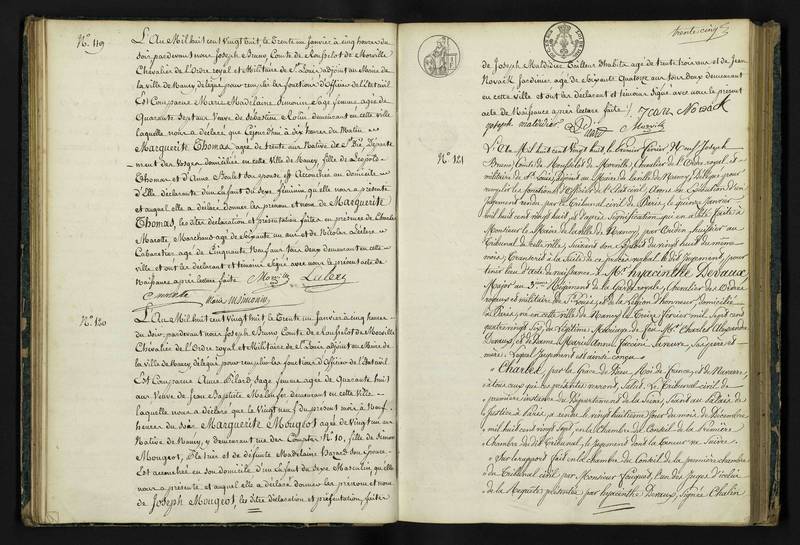 N.° 119
L'An Mil huit cent vingt huit le Trente un Janvier à cinq heures du
soir, pardevant nous Joseph Bruno Comte de Rousselot de Morville
Chevalier de l'Ordre royal et Militaire de St Louis adjoint au Maire de
la ville de Nancy délégué pour remplir les fonctions d'Officier de l'Etat civil
Est Comparue Marie Madelaine Simonin Sage femme, agée de
Quarante Sept ans Veuve de Sébastien Colin, demeurant en cette ville
laquelle nous a déclaré que cejourd'hui à dix heures du Matin
Marguerite Thomas, agée de trente ans Native de St Dié, Départe
-ment des Vosges domiciliée en cette Ville de Nancy, fille de Léopold
Thomas et d'Anne Boulet son épouse est Accouchée au domicile
d'Elle déclarante d'un Enfant du Sexe féminin qu'elle nous a présenté
et auquel elle a déclaré donner les prénom et nom de Marguerite
Thomas, les dites déclaration et présentation faites en présence de Charles
Marotte, Marchand agé de soixante un ans et de Nicolas
Cabaretier agé de Cinquante Neuf ans tous deux demeurant en cette
ville et ont les déclarant et témoins Signé avec nous le présent acte de
Naissance après lecture faite. Morville
Marie Simonin
N.° 120
L'An Mil huit cent vingt huit le Trente un Janvier à cinq heures
du Soir, pardevant nous Joseph Bruno Comte de Rousselot de Morville
Chevalier de l'Ordre royal et Militaire de St Louis adjoint au Maire de
la ville de Nancy délégué pour remplir les fonctions d'Officier de l'Etat civil
Est Comparue Anne Sage femme agée de Quarante huit
ans Veuve de Jean Baptiste demeurant en cette Ville
laquelle nous a déclaré que le Vingt neuf du présent mois à Neuf
heures du Soir Marguerite Mougeot agée de Vingt un ans
Native de Nancy, y demeurant rue des Comptes N.° 10, fille de Simon
Mougeot, et de défunte Madelaine son Epouse
Est accouchée en son domicile d'un Enfant du Sexe Masculin, qu'elle
nous a présenté et auquel elle a déclaré donner les prénom et nom
de Joseph Mougeot, les dites déclaration et présentation, faites
trente cinq
de Joseph Maldidier Tailleur d'habits agé de trente trois ans et de Jean
Novack Jardinier agé de Soixante Quatorze ans tous deux demeurant
en cette ville et ont les déclarant et témoins Signé avec nous le présent
acte de Naissance après lecture faite /. Jean Novack
joseph maldidier Morville
N.° 121
L'An Mil huit cent Vingt huit le premier Février Nous Joseph
Bruno Comte de Rousselot de Morville, Chevalier de l'Ordre royal et
militaire de St Louis, Adjoint au Maire de la ville de Nancy, Délégué pour
remplir les fonctions d'Officier de l'Etat civil, Avons en Exécution d'un
Jugement rendu par le Tribunal civil de Paris, le quinze Janvier
mil huit cent vingt huit, et d'après Signification qui en a été faite à
Monsieur le Maire de la Ville de Nancy, par Huissier au
Tribunal de cette ville, suivant son Exploit du vingt huit du même
mois, Transcrit à la Suite de ce présent registre le dit Jugement, pour
tenir lieu d'Acte de naissance à Mr. hyacinthe Devaux
Major au 3.ème Régiment de la Garde royale, Chevalier des Ordres
royaux et militaire de St Louis, et de la Légion d'honneur, domicilié
à Paris, né en cette ville de Nancy le Treize Février mil Sept cent
quatre vingt Six, du Légitime Mariage de feu Mr. Charles Alexandre
Devaux, et de Dame Marie Anne Ses père et
mère. Lequel Jugement est ainsi conçu
« Charles, par la Grace de Dieu Roi de France et de Navarre,
à tous ceux qui ces présentes verront, Salut. Le Tribunal civil de
première instance du Département de la Seine, Séant au Palais de
Justice à Paris, a rendu le vingt huitième Jour du mois de Décembre
mil huit cent vingt Sept, en la Chambre du Conseil de la Première
Chambre du dit Tribunal, le Jugement dont la teneur va Suivre.
Sur le rapport fait en la chambre du Conseil de la première chambre
du Tribunal civil par Monsieur Fouquet, l'un des Juges d'icelui
de la Requête présentée par hyacinthe Devaux, signée Chatin